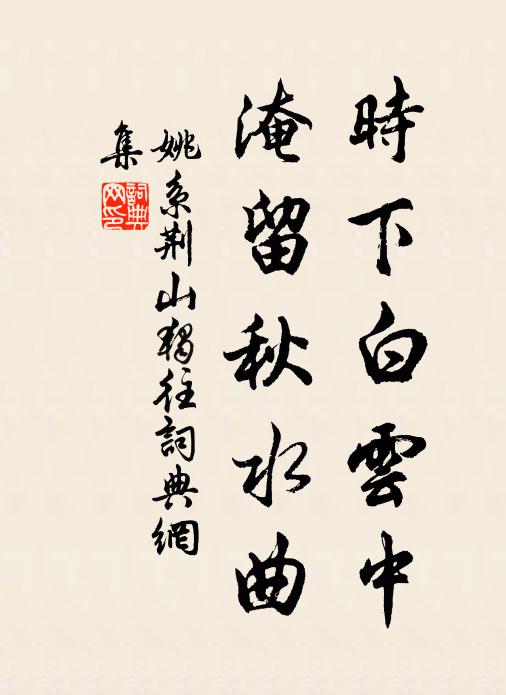 時下白雲中
淹留秋水曲
姚系荆山獨往詞典網
集
詞典
网印